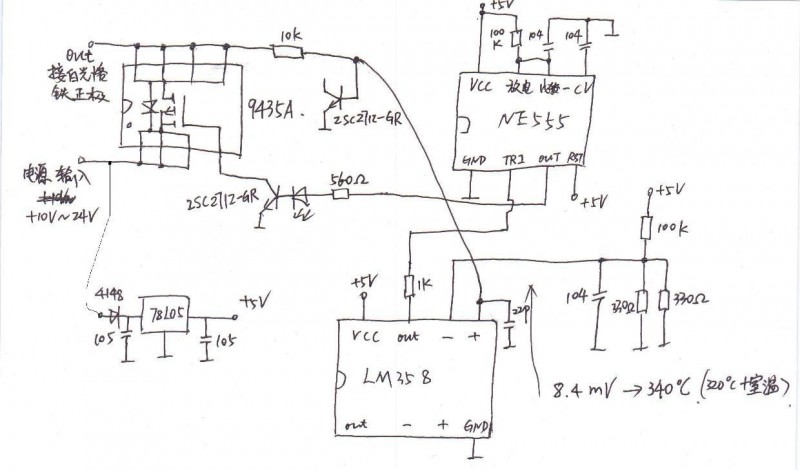 +5V
10K
100
K
104
104
out
接白光烙
铁正极
9435A.
2SC2712-GR
VCC
放电
CV
NE555
GND
TRI
OUT
RST
+5V
电源 输入
+10V~24V
2SC2712-GR
560Ω
+5V
100K
4148
78L05
+5V
105
105
+5V
1K
22P
104
330Ω
330Ω
VCC
out
-
+
LM358
8.4mV→340℃(320℃+室温)
out
-
+
GND